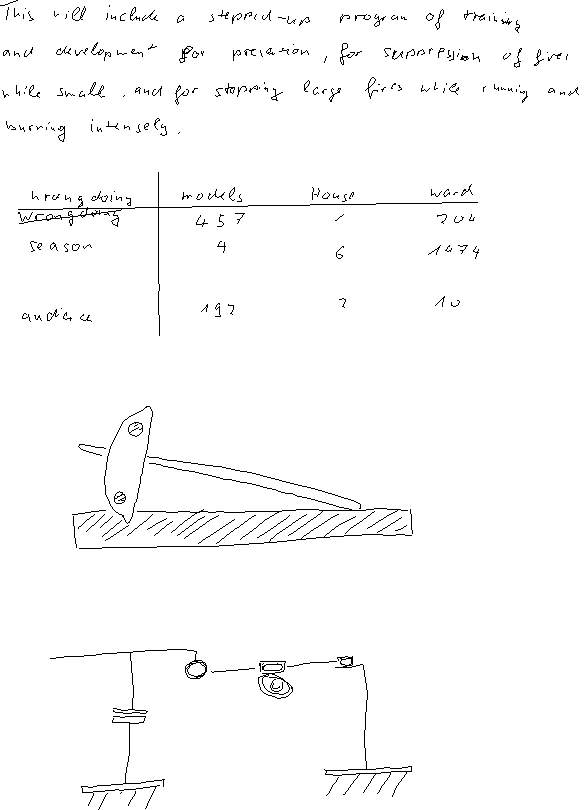 This will include a stepped-up program of training
and development for prevention, for suppression of fires
while small, and for stopping large fires while running and
burning intensely.
wrongdoing models House ward
457 1 204
season 4 6 1474
audience 192 2 10